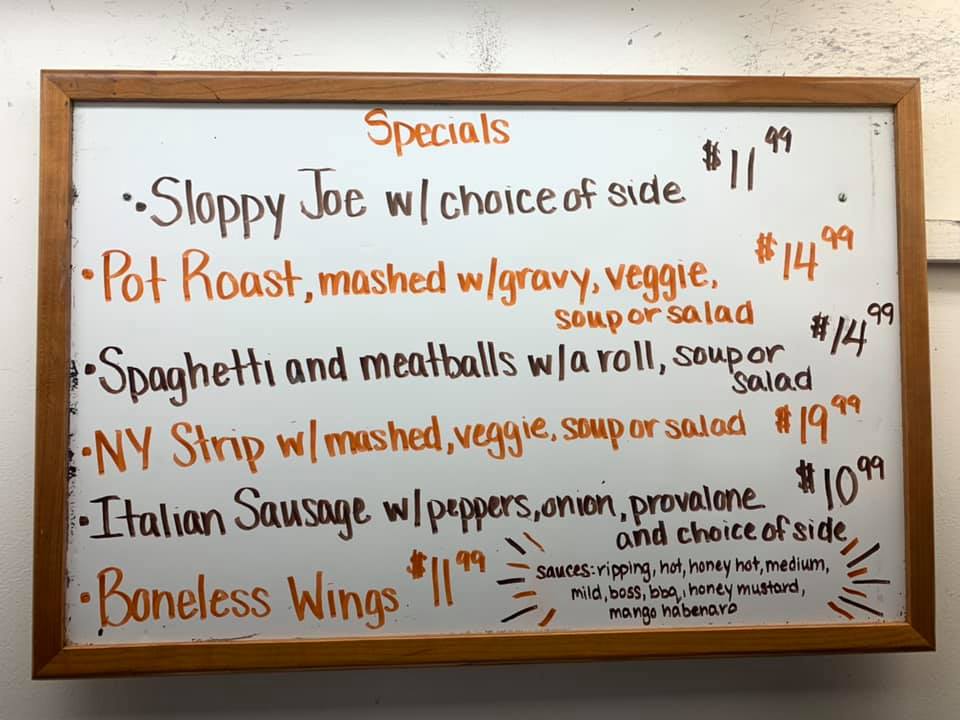 Specials
• Sloppy Joe w/ choice of side $11.99
• Pot Roast, mashed w/gravy, veggie, $14.99
soup or salad
• Spaghetti and meatballs w/a roll, soup or $14.99
salad
• NY Strip w/ mashed, veggie, soup or salad $19.99
• Italian Sausage w/peppers, onion, provalone $10.99
and choice of side
• Boneless Wings $11.99
sauces: ripping, hot, honey hot, medium,
mild, boss, bbq, honey mustard,
mango habenaro